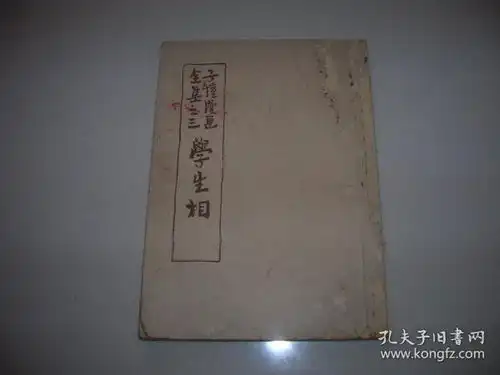 子愷漫畫
全集之三
學生相
孔夫子旧书网
www.kongfz.com